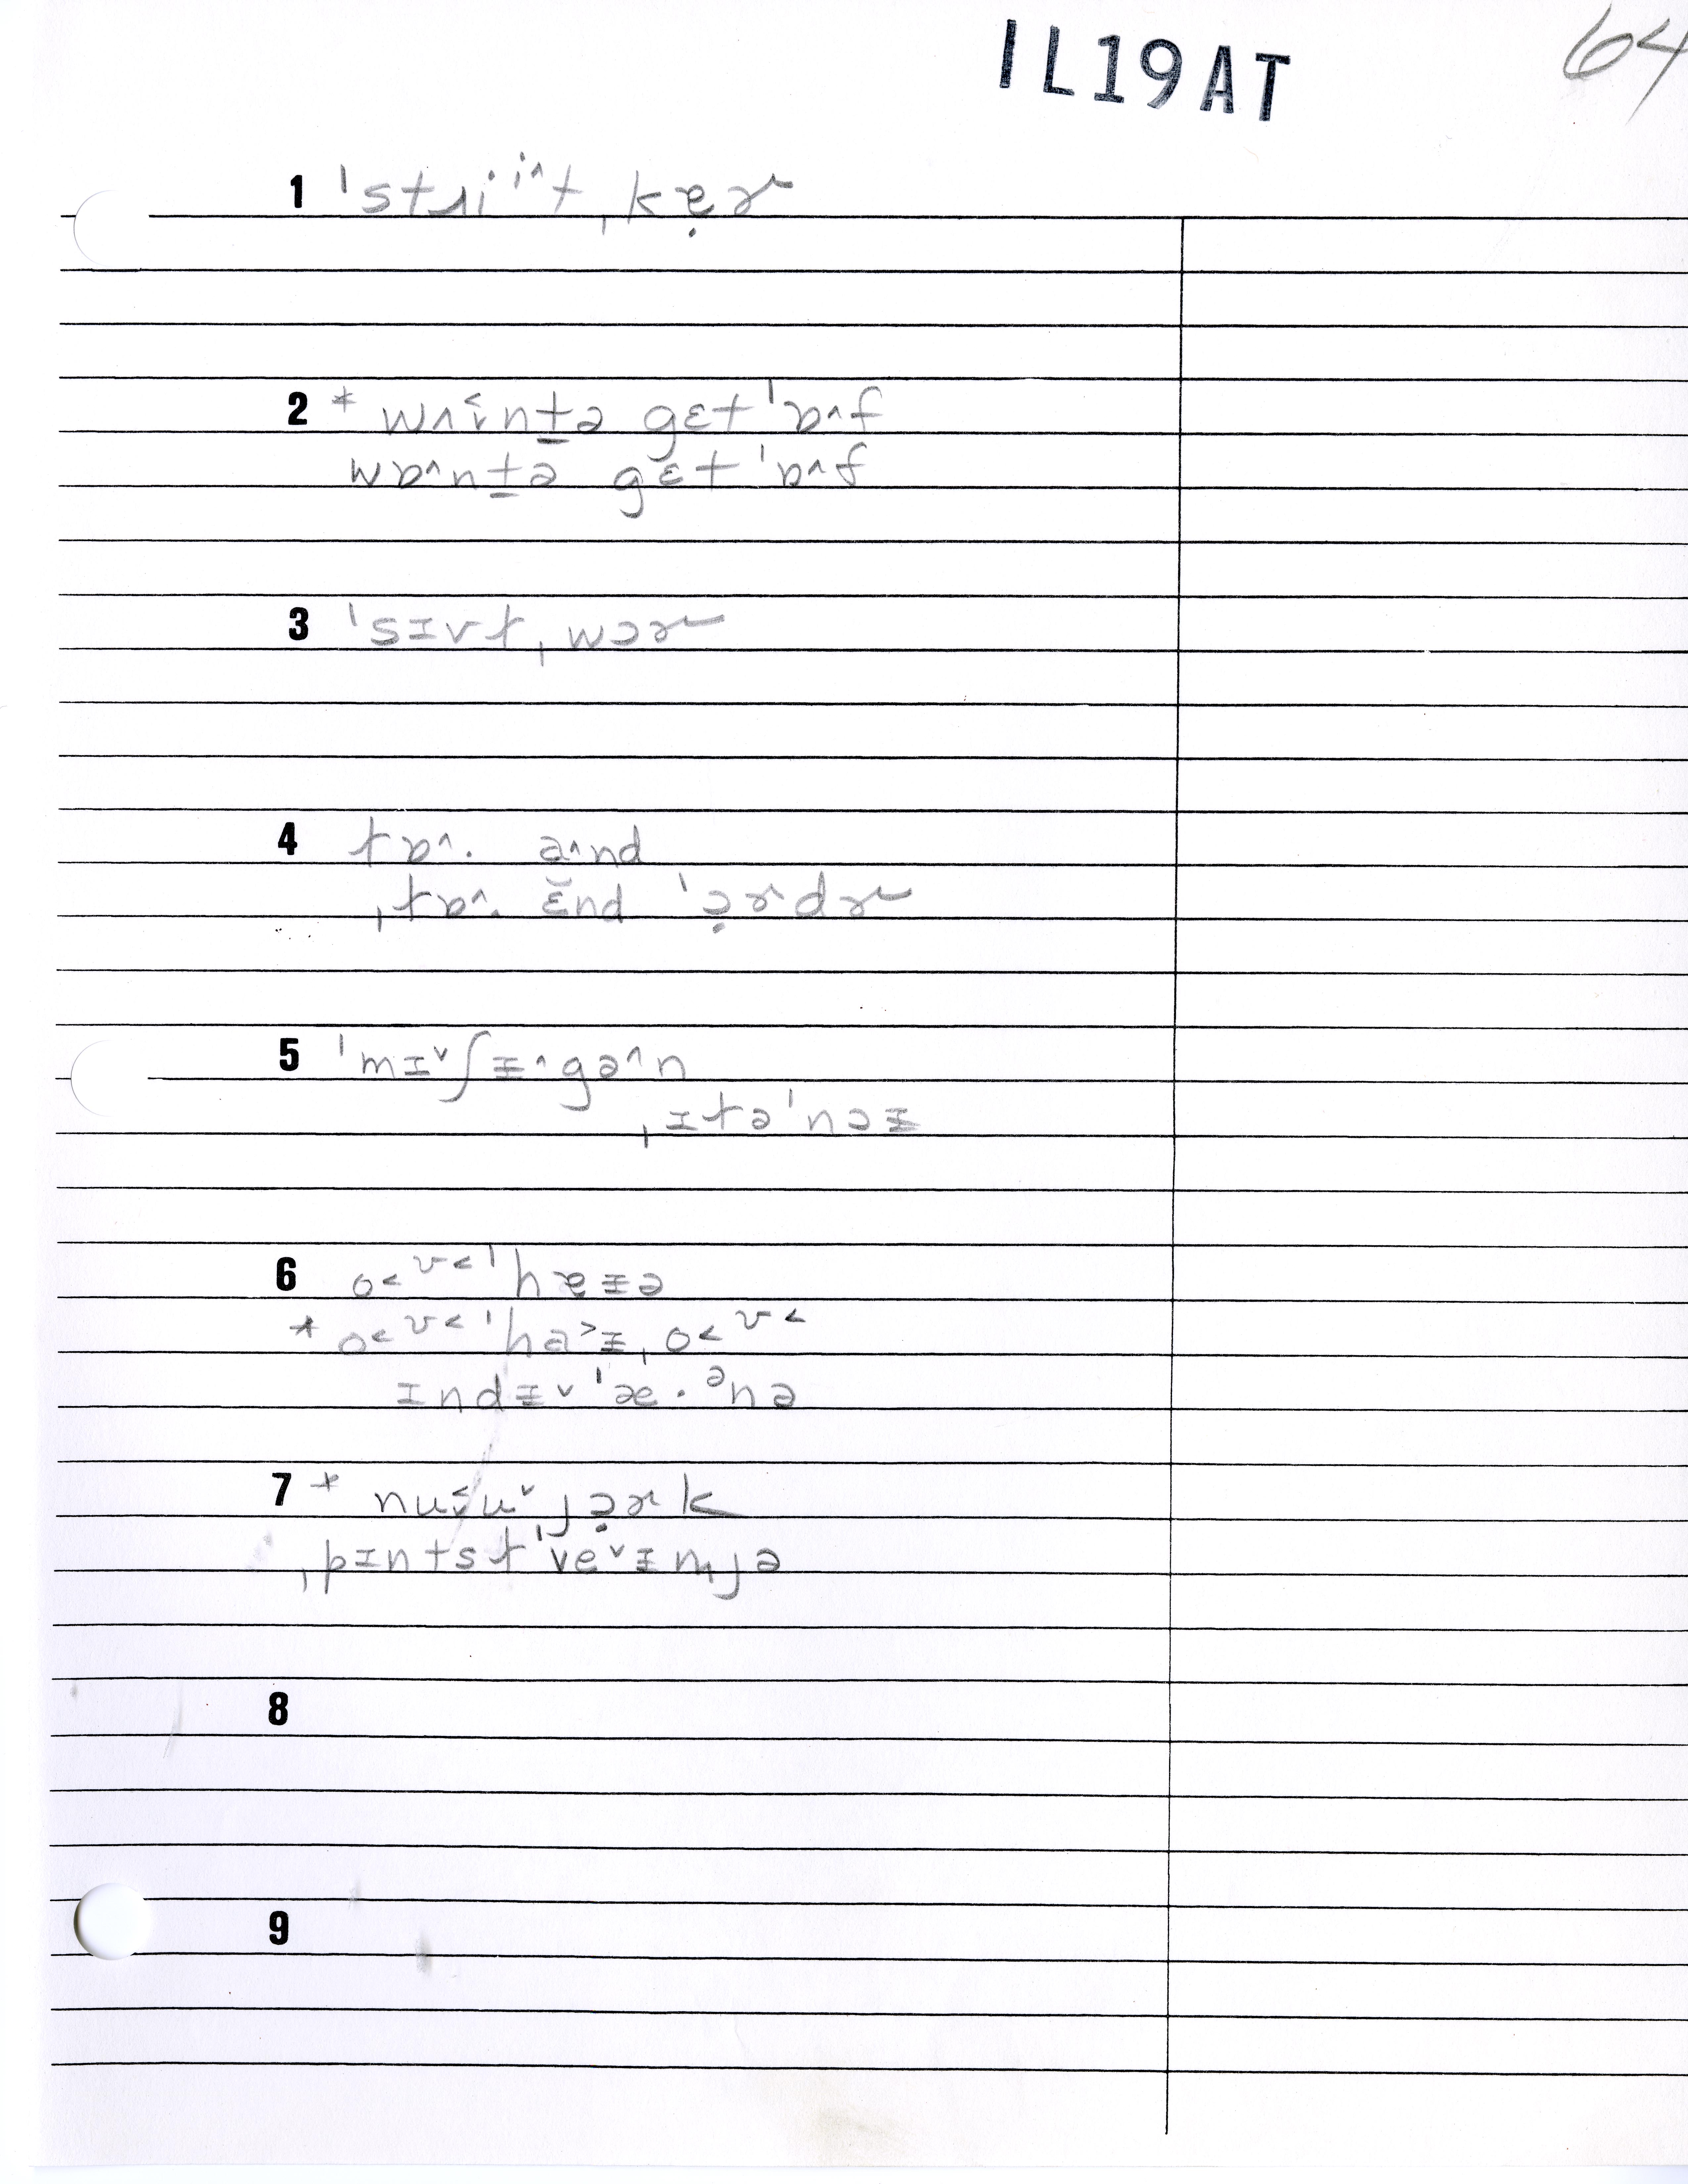 IL19AT
64
1 ˈstɹi iˆt ˌkɐ̣ɚ
2 * wʌ˂i̜nt̲ə gɛt ˈɒ^f
wɒ^nt̲ə gɛt ˈɒ^f
3 ˈsɪvt ˌwɔɚ
4 tɒ^. ə^nd
ˌtɒ^. ɛ̆nd ˈɔ̣ɚdɚ
5 ˈmɪˇʃᵻ^gə^n
ˌɪtəˈnɔᵻ
6 o˂ ʊ˂ ˈhɐᵻə
* o˂ ʊ˂ ˈha˃ᵻˌo˂ ʊ˂
ɪndᵻˇ ˈæ.ᵊnə
7 * nu˂uˇ jɔ̣ɚk
ˌpɪntstˈveˇᵻnjə
8
9